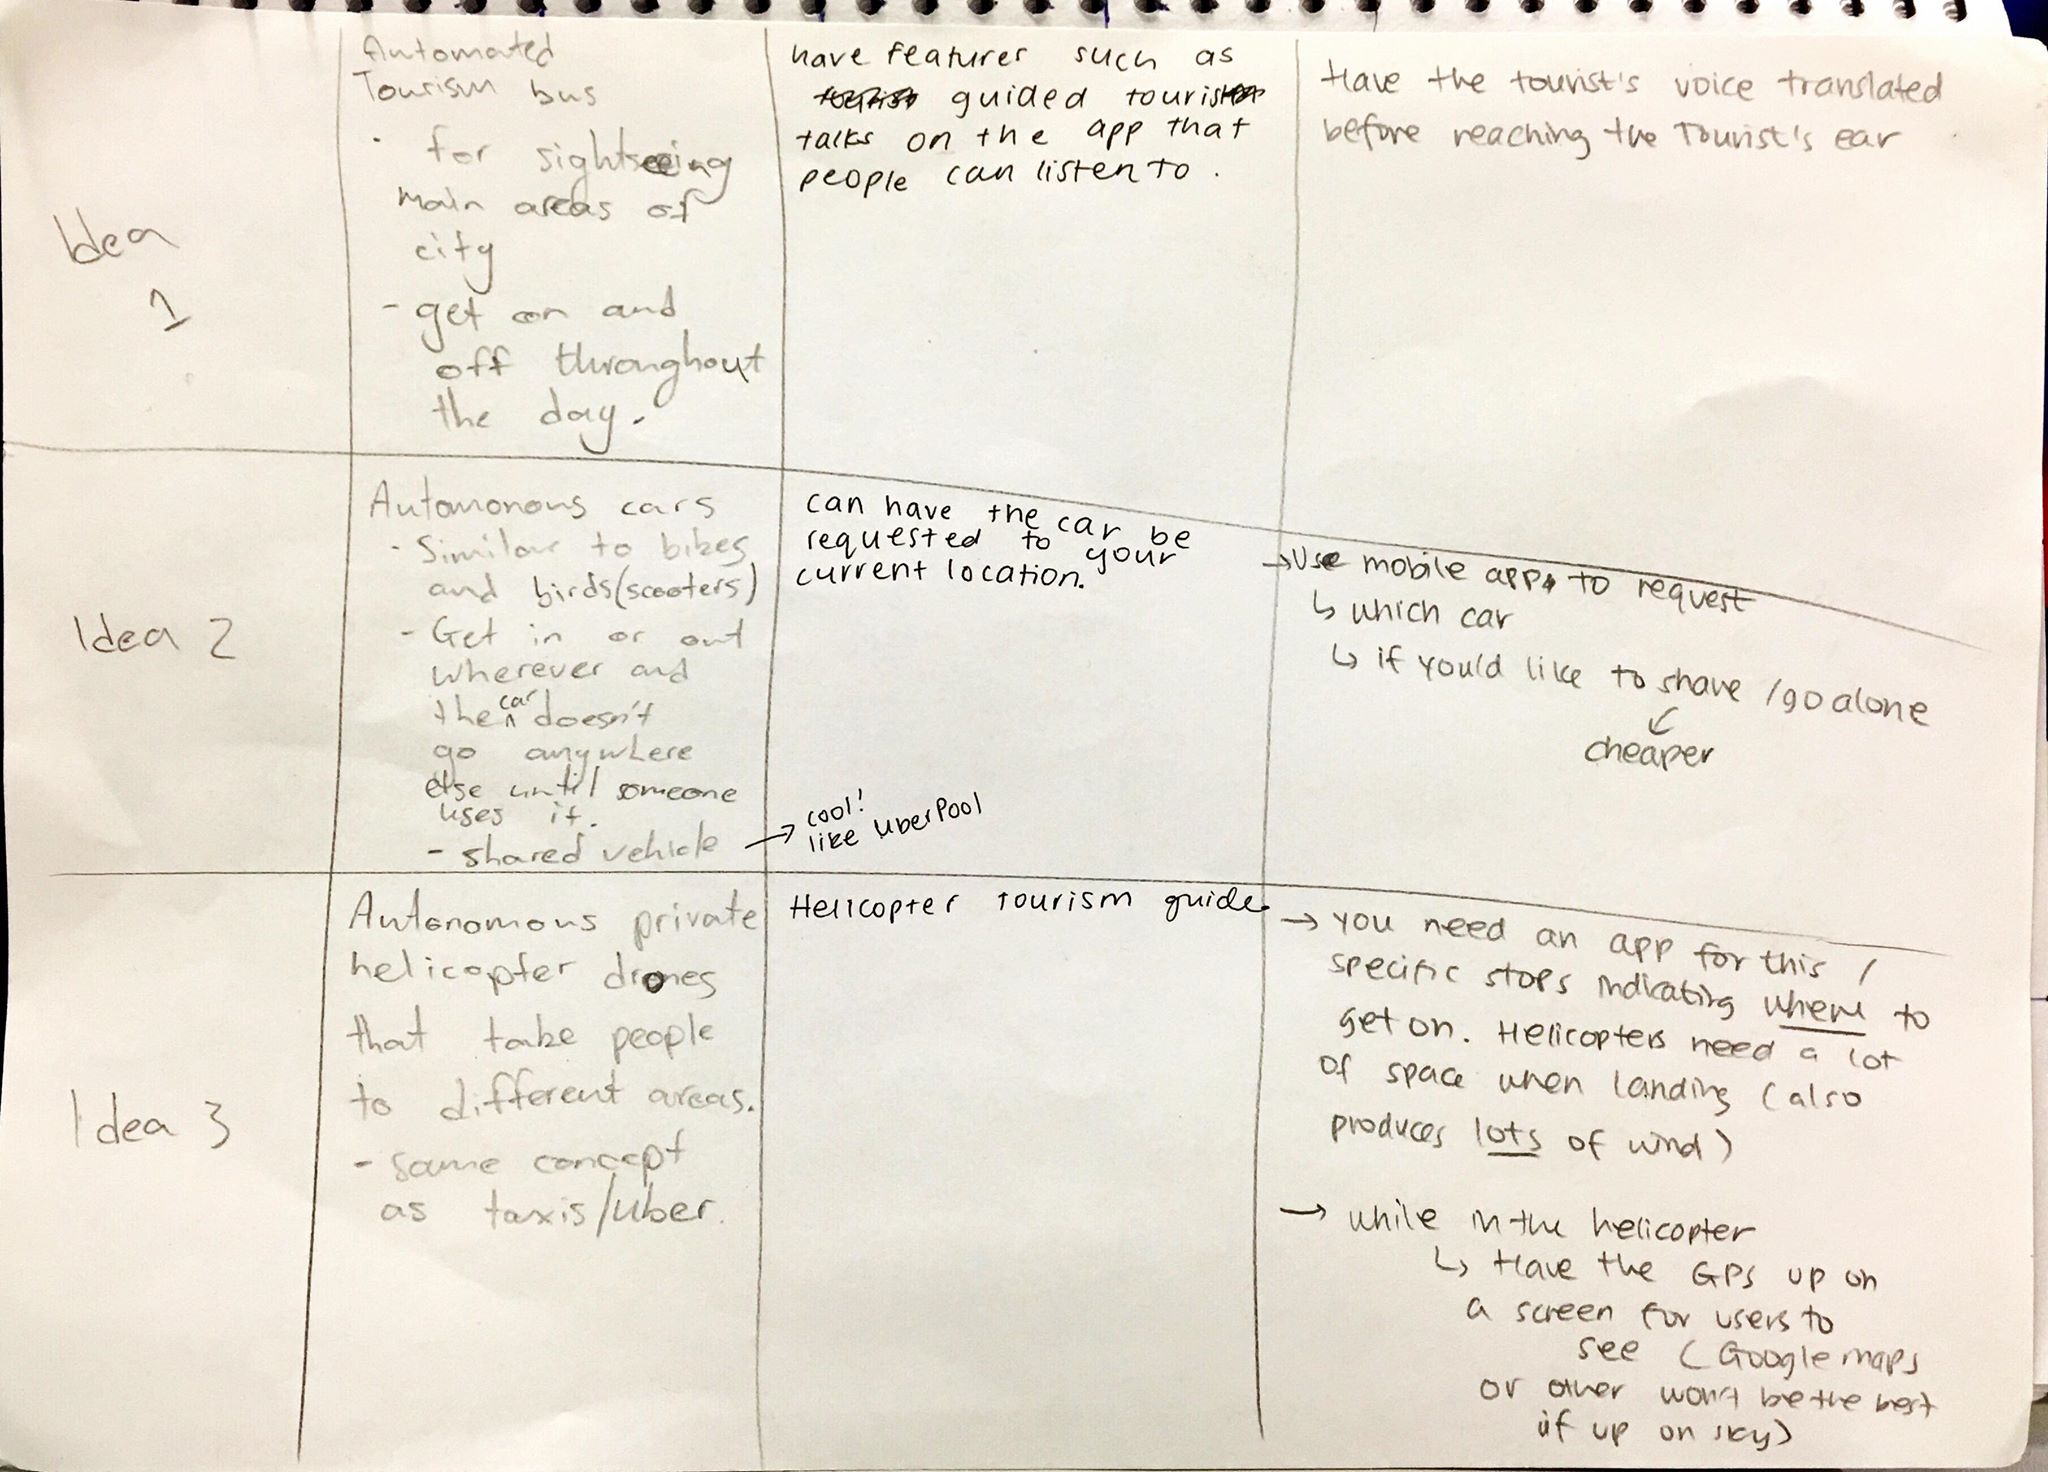 Idea
1
Automated
Tourism bus
· for sightseeing
main areas of
city
- get on and
off throughout
the day.
have features such as
guided tourist
talks on the app that
people can listen to.
Have the tourist's voice translated
before reaching the Tourist's ear
Idea 2
Automonous cars
- Similar to bikes
and birds(scooters)
- Get in or out
wherever and
then car doesn't
go anywhere
else until someone
uses it.
- shared vehicle →
can have the car be
requested to your
current location.
cool!
like UberPool
→ Use mobile app to request
↳ which car
↳ if you'd like to share / go alone
↙
cheaper
Idea 3
Autonomous private
helicopter drones
that take people
to different areas.
- same concept
as taxis/uber.
Helicopter tourism guide.
→ you need an app for this /
specific stops indicating where to
get on. Helicopters need a lot
of space when landing (also
produces lots of wind)
→ while in the helicopter
↳ Have the GPS up on
a screen for users to
see (Google maps
or other won't be the best
if up on sky)